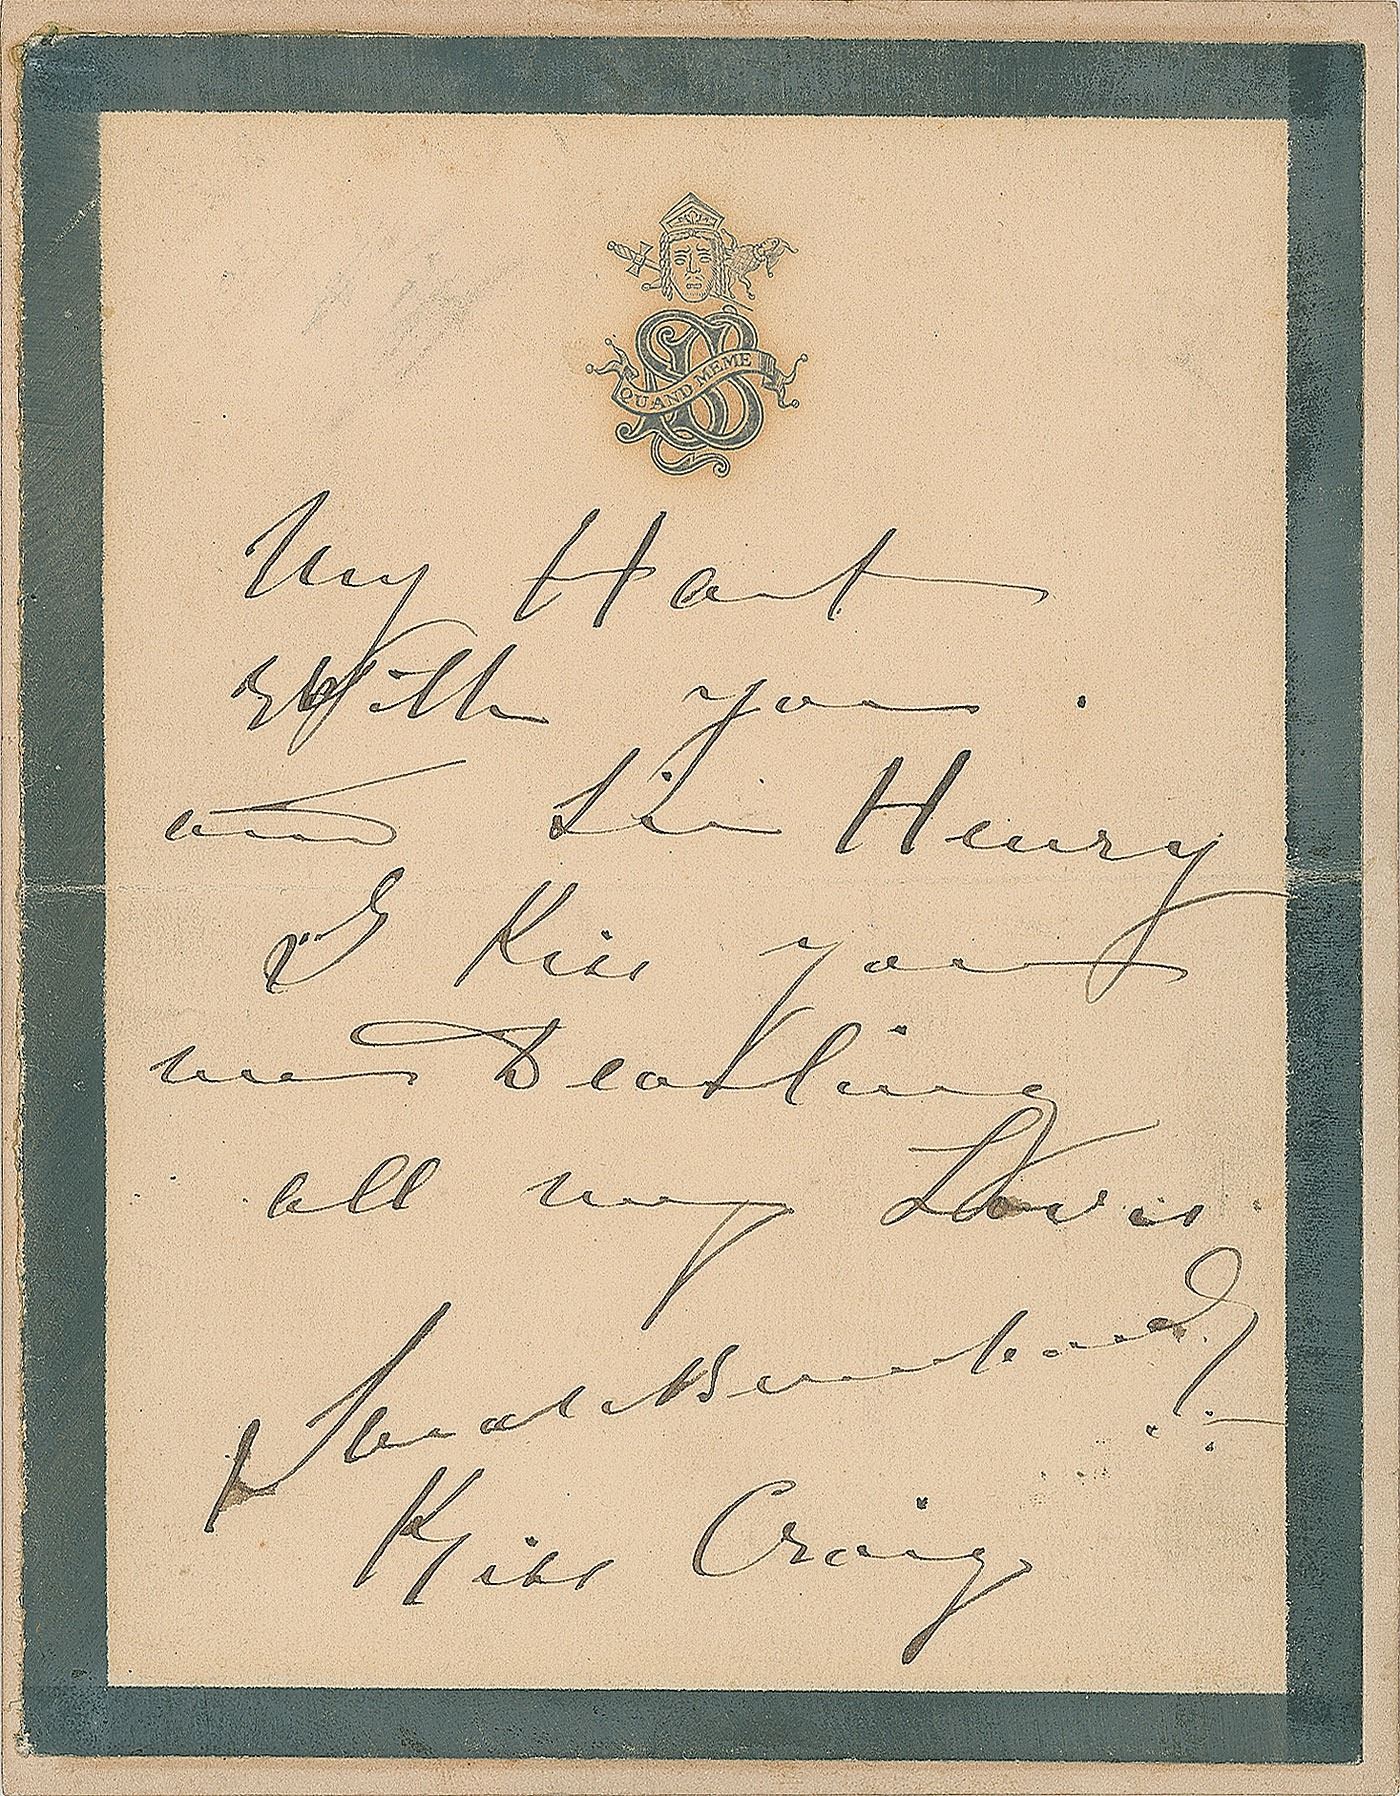 QUAND MEME
My Hart
With you.
and Sir Henry
I Kiss you
my Dearling
all my Love is
Sarah Bernhardt
Kiss Craig